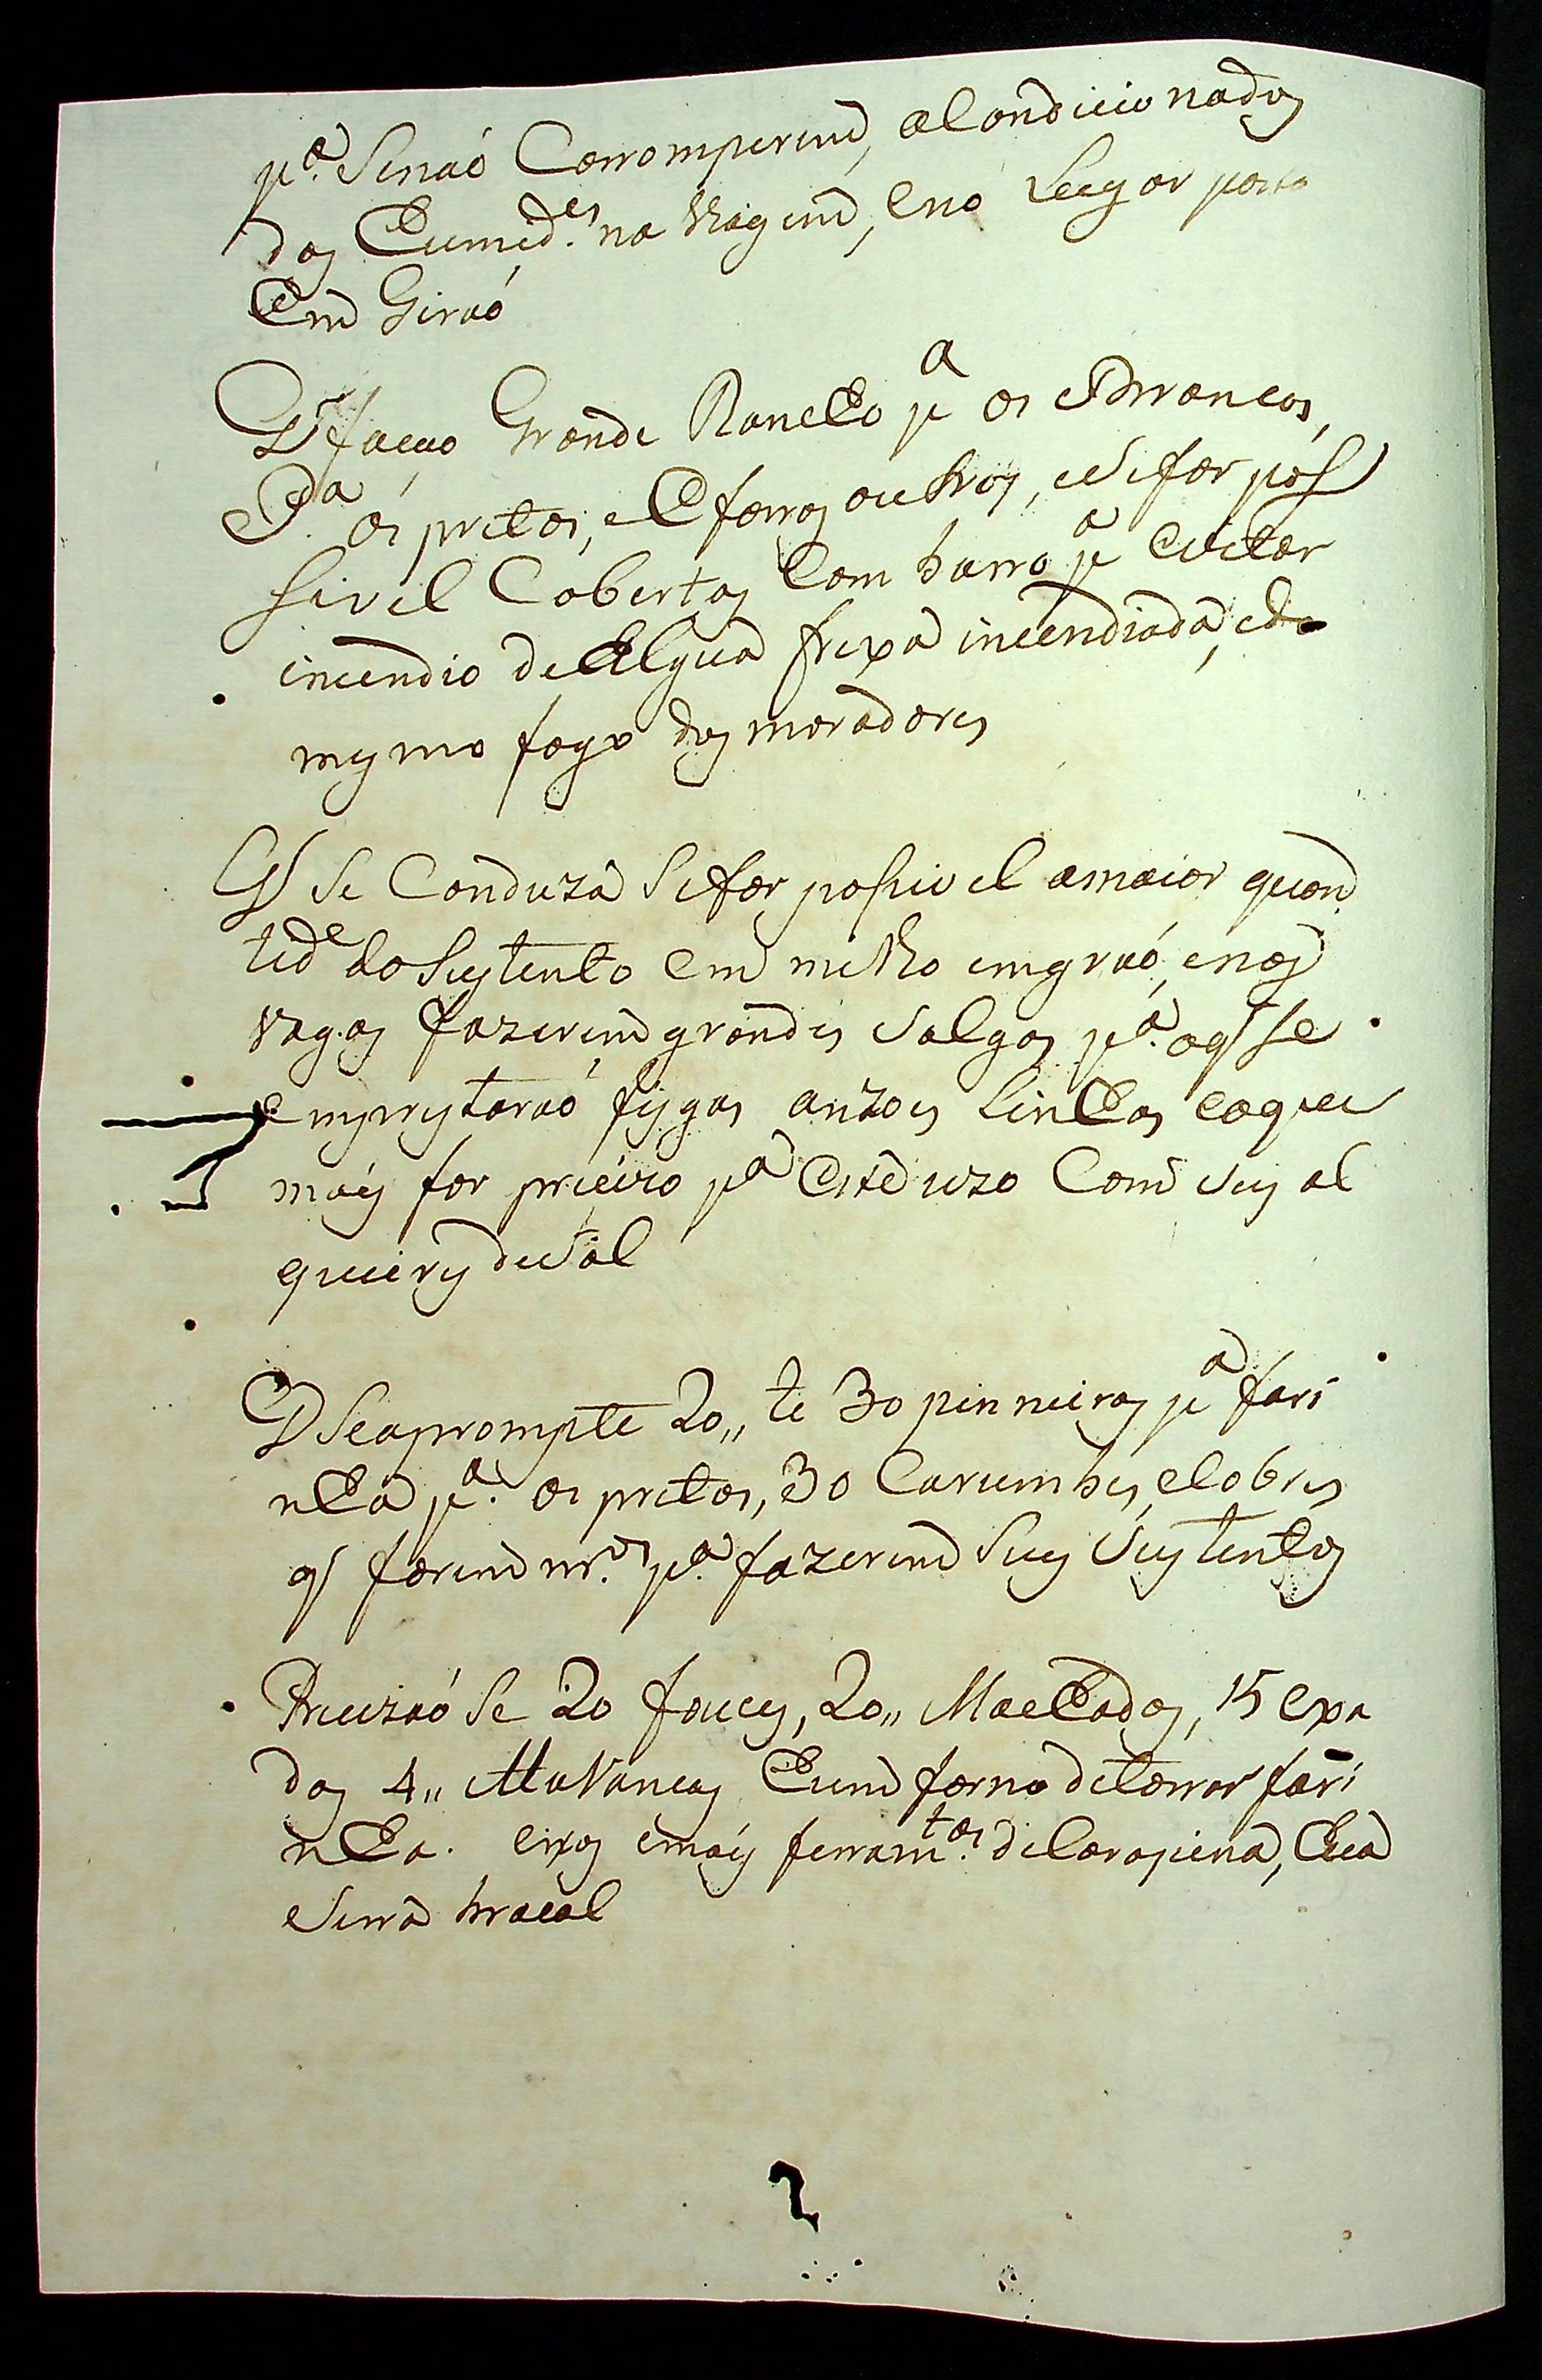 p.ª Senaó Corromperem, aCondicionados
das humid.es na viagem, eno Lugar posto
Em Giraó
Q faao Grande Rancho pª os Brancos,
Pª os pretos, e Eforros outros, eSe for pos
sivel Cobertos Com barro pª evitar
incendio de Algua frexa incendiada, e do
mesmo fogo dos moradores
Q Se Conduza Se for possivel amaior quan
tide do Sustento Em milho emgraó, enas
Vagas fazerem grandes Salgas pª. oq Se
emprestaraó fisgas anzoes Linhas eoque
mais for precizo pª este uzo Com Seis al
queires de Sal
Q Seaprompte 20,, te 30 penneiras pª fari
nha pª. os pretos, 30 Carumbes, eCobres
q forem nr.os pª. fazerem Seus Sustentos
Precizaó Se 20 fouces, 20,, Machados, 15 exa
das 4,, Alavancas hum forno de torrar fari
nha. eixos emais ferram.tos de Carapina, hua
Serra braçal
2